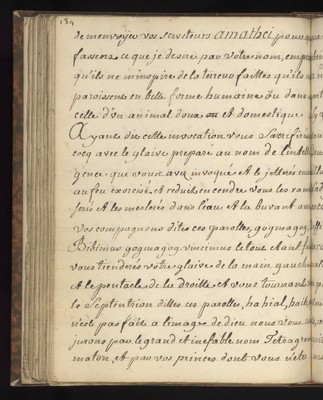 134
de menvoyer vos serviteurs amathei, pour qu
fassent ce que je desire par votre nom, em
qu'ils ne m'inspire de la terreur faittes qu'ils
paroissent en belle forme humaine ou dans
celle d'un animal doux et domestique
Ayant dit cette invocation vous sacrifi
cocq avec le glaive preparé au nom de l'intell
gence que vous avez invoqué et le jetterés
au feu exorcisé et reduit en cendre vous les ram
serés et les meslerés dans l'eau et la buvant av
vos compagnons dites ces parolles, gogmagog
Bibimus gogmagog vincimus le tout
vous tiendrés votre glaive de la main gauche
et le pentacle de la droitte et vous tournant
le septentrion dittes ces parolles, ha hial, hai
n'est pas fait a limage de dieu nous vous
jurons par le grand et inefable nom Tetragra
maton, et par vos princes dont vous n'ete